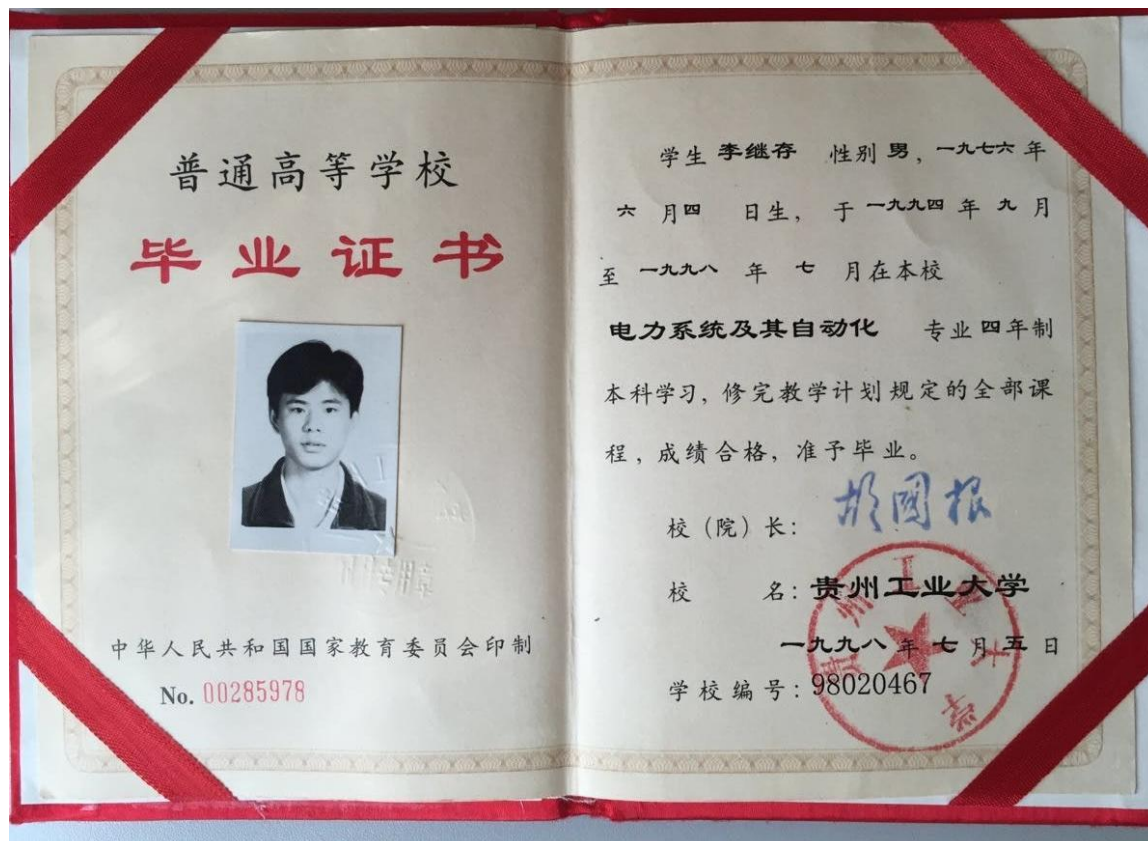 普通高等学校
毕业证书
中华人民共和国国家教育委员会印制
No. 00285978
学生 李继存 性别 男，一九七六 年
六 月 四 日生，于 一九九四 年 九 月
至 一九九八 年 七 月在本校
电力系统及其自动化 专业 四 年制
本科学习，修完教学计划规定的全部课
程，成绩合格，准予毕业。
校（院）长：胡國根
校 名：贵州工业大学
一九九八 年 七 月 五 日
学校编号：98020467
贵州工业大学